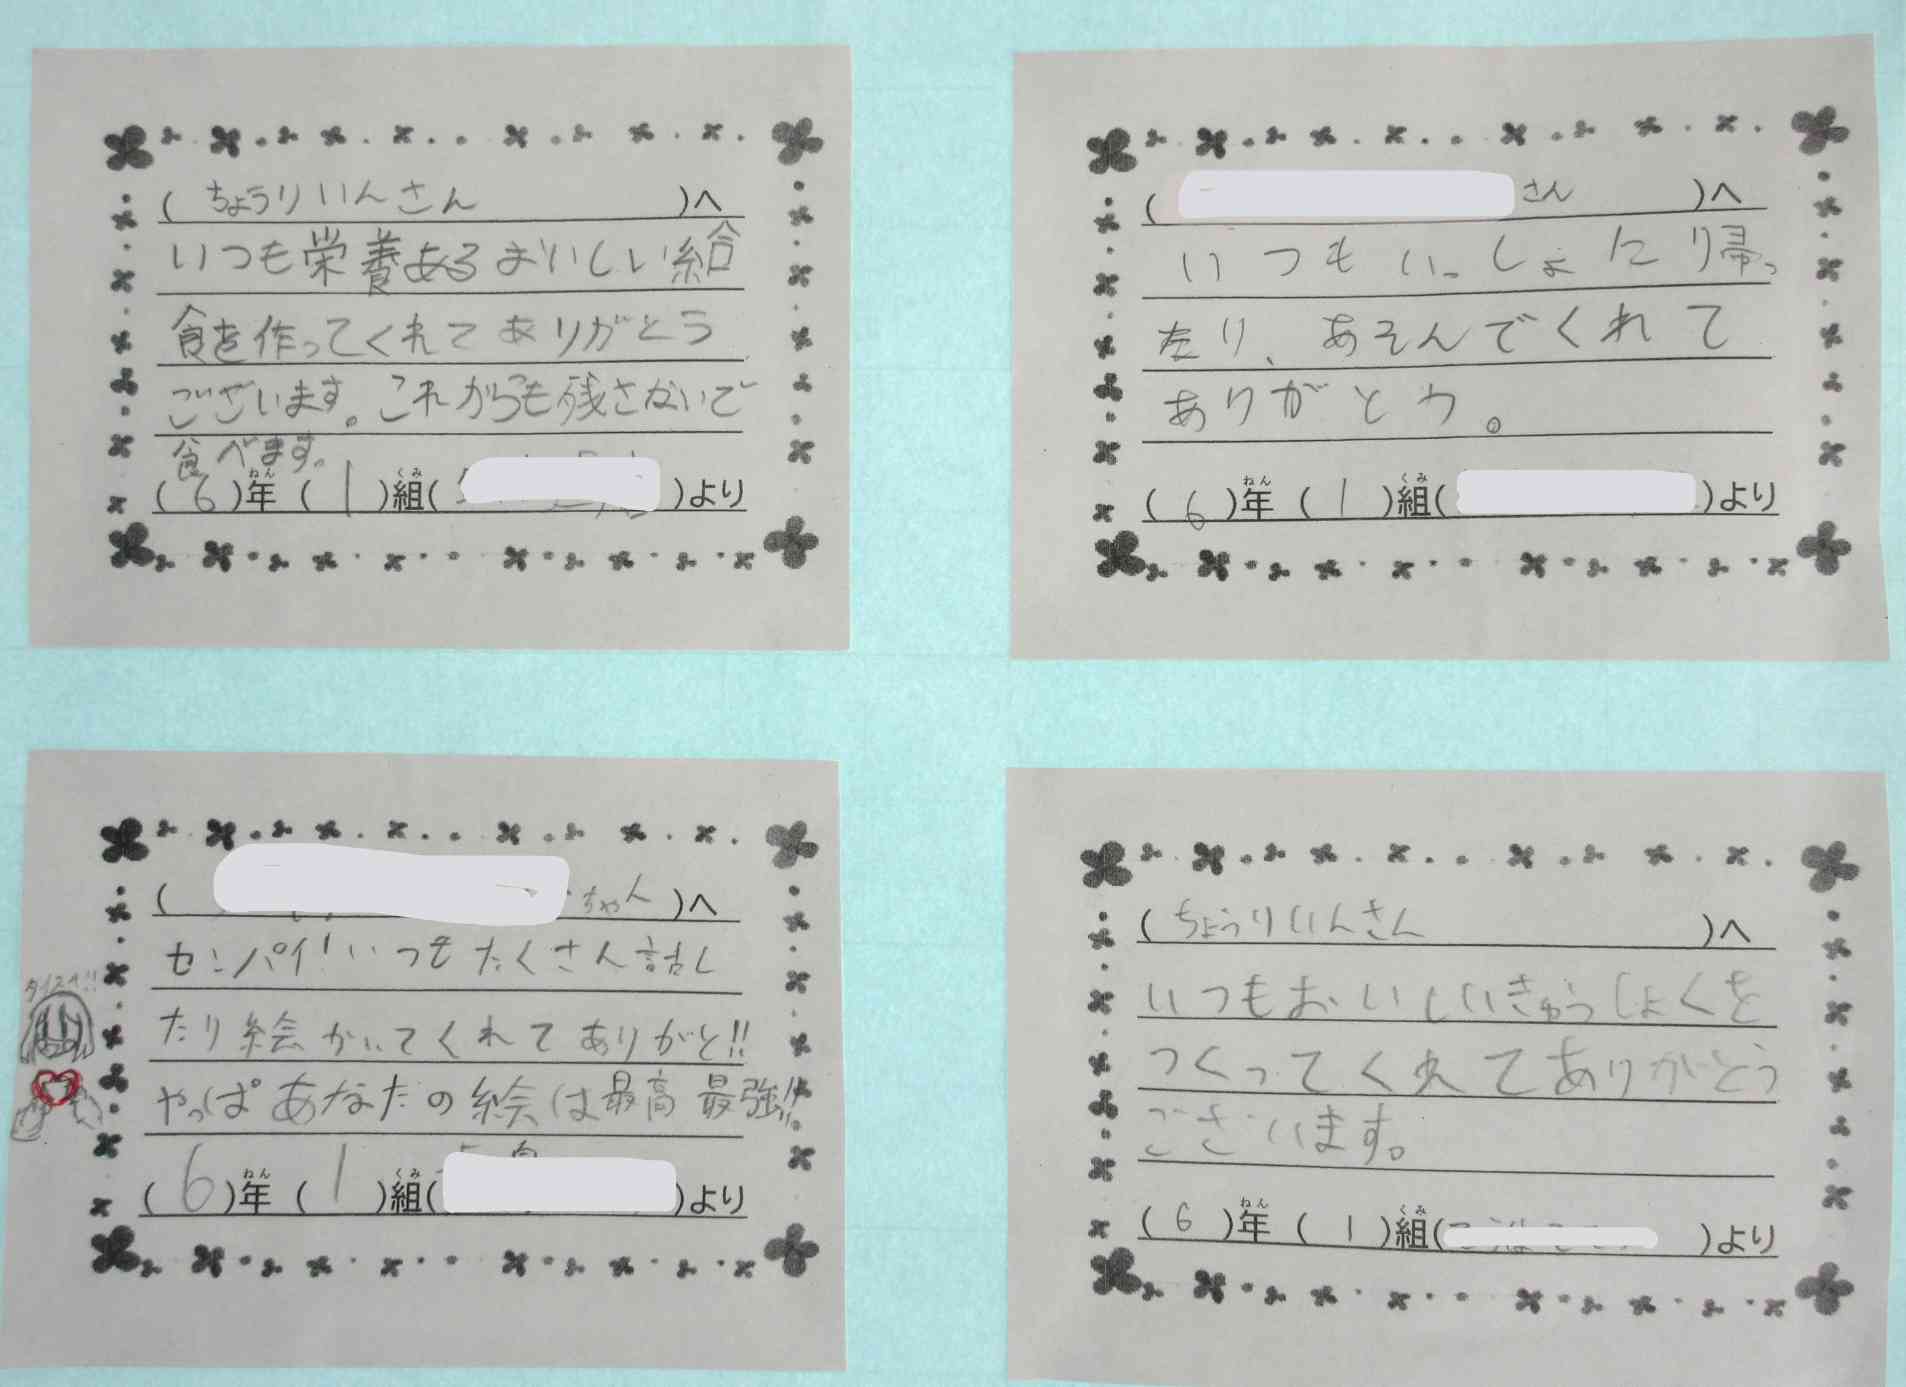 (ちょうりいんさん)へ
いつも栄養あるおいしい給
食を作ってくれてありがとう
ございます。これからも残さないで
食べます。
(6)年(1)組( )より
ねん くみ
( さん)へ
いつもいっしょに帰っ
たり、あそんでくれて
ありがとう。
(6)年(1)組( )より
ねん くみ
( ちゃん)へ
センパイ!いつもたくさん話し
たり絵かいてくれてありがと!!
やっぱあなたの絵は最高最強!!
(6)年(1)組( )より
ねん くみ
(ちょうりいんさん)へ
いつもおいしいきゅうしょくを
つくってくれてありがとう
ございます。
(6)年(1)組( )より
ねん くみ